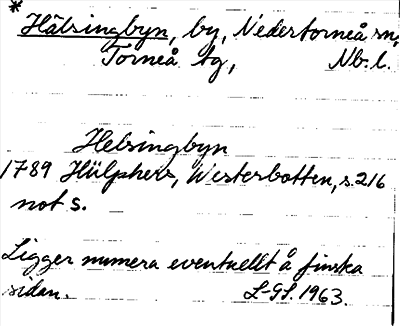 * Hälsingbyn, by, Nedertorneå sn,
Torneå tg, Nb. l.
Helsingbyn
1789 Hülphers, Westerbotten, s. 216
not s.
Ligger numera eventuellt å finska
sidan. L-GS. 1963.